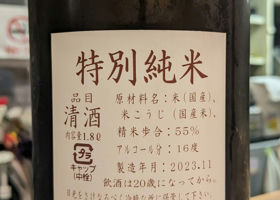 特別純米
品目
清酒
内容量1.8ℓ
プラ
キャップ
(中栓)
原材料名:米(国産)、
米こうじ(国産米)、
精米歩合:55%
アルコール分:16度
製造年月:2023.11
飲酒は20歳になってから。